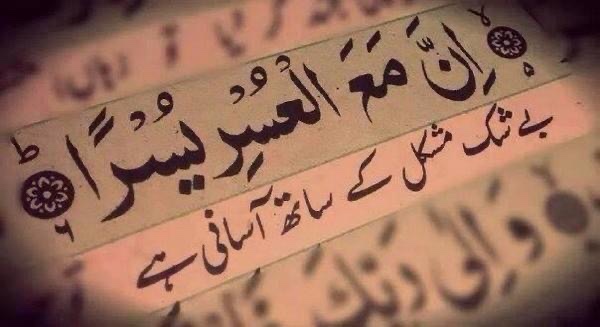 اِنَّ مَعَ الْعُسْرِ يُسْرًا ؕ ۶
بے شک مشکل کے ساتھ آسانی ہے
وَ اِلٰی رَبِّكَ